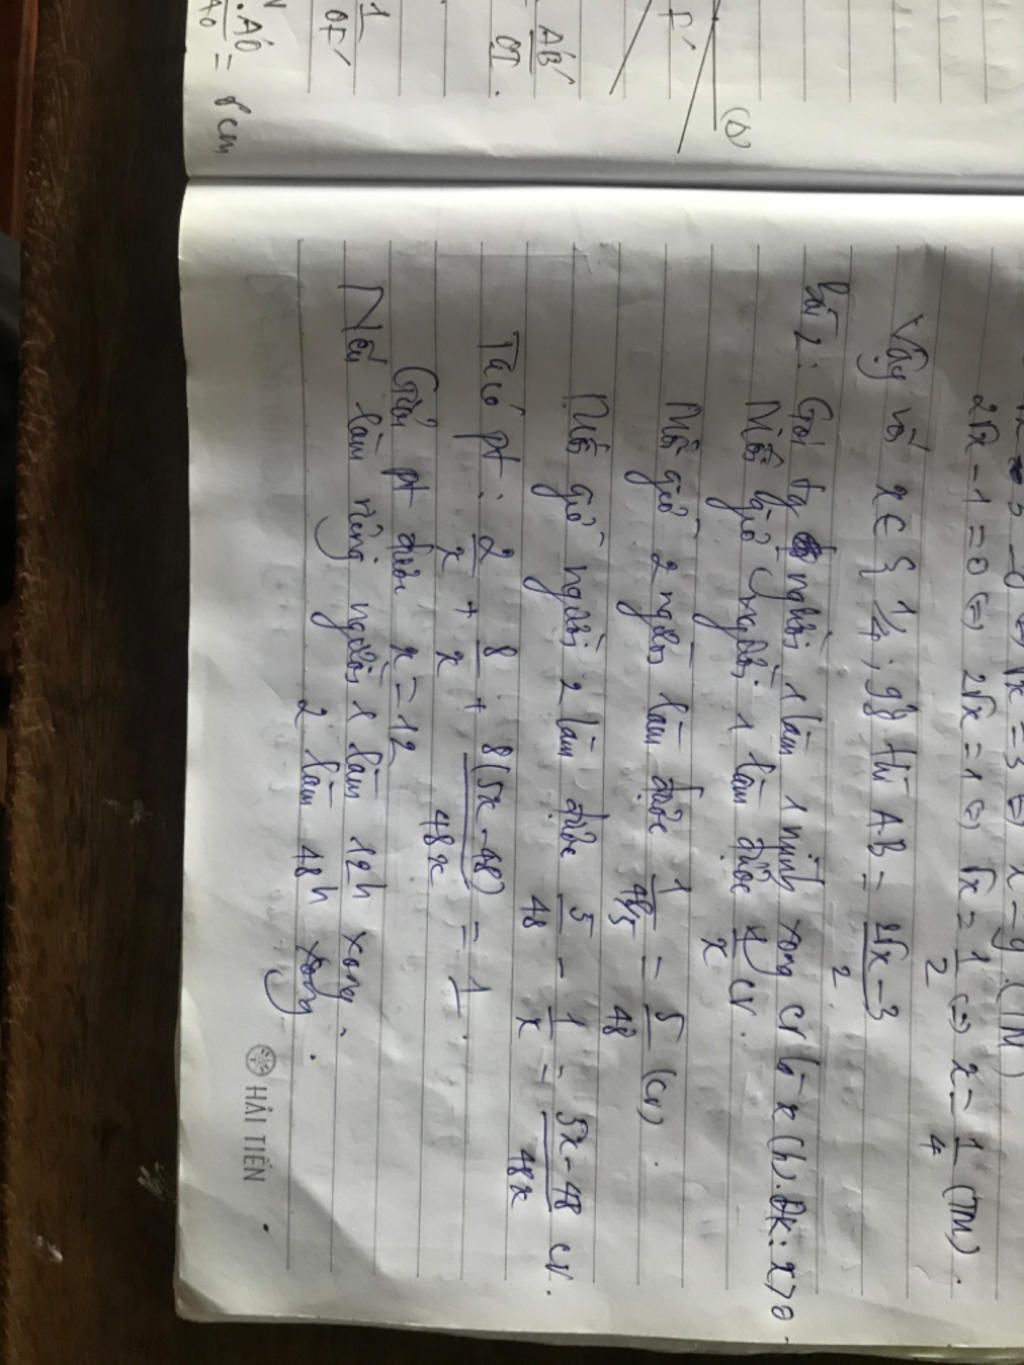 A'B'
OI
1
OF'
.A'O
AO
= 8cm
F'
(Δ)
= 3 ⇔ x = 9 (TM)
2√x - 1 = 0 ⇔ 2√x = 1 ⇔ √x = 1/2 ⇔ x = 1/4 (TM).
Vậy với x ∈ { 1/4 ; 9} thì AB = (2√x - 3)/2
bài 2: Gọi tg người 1 làm 1 mình xong cv là x (h). ĐK: x > 0.
Mỗi giờ người 1 làm được 1/x cv.
Mỗi giờ 2 người làm được 1/(48/5) = 5/48 (cv).
Mỗi giờ người 2 làm được 5/48 - 1/x = (5x - 48)/48x cv.
Ta có pt: 2/x + 8/x + 8(5x - 48)/48x = 1.
Giải pt được x = 12
Nếu làm riêng người 1 làm 12h xong.
2 làm 48h xong.
HẢI TIẾN